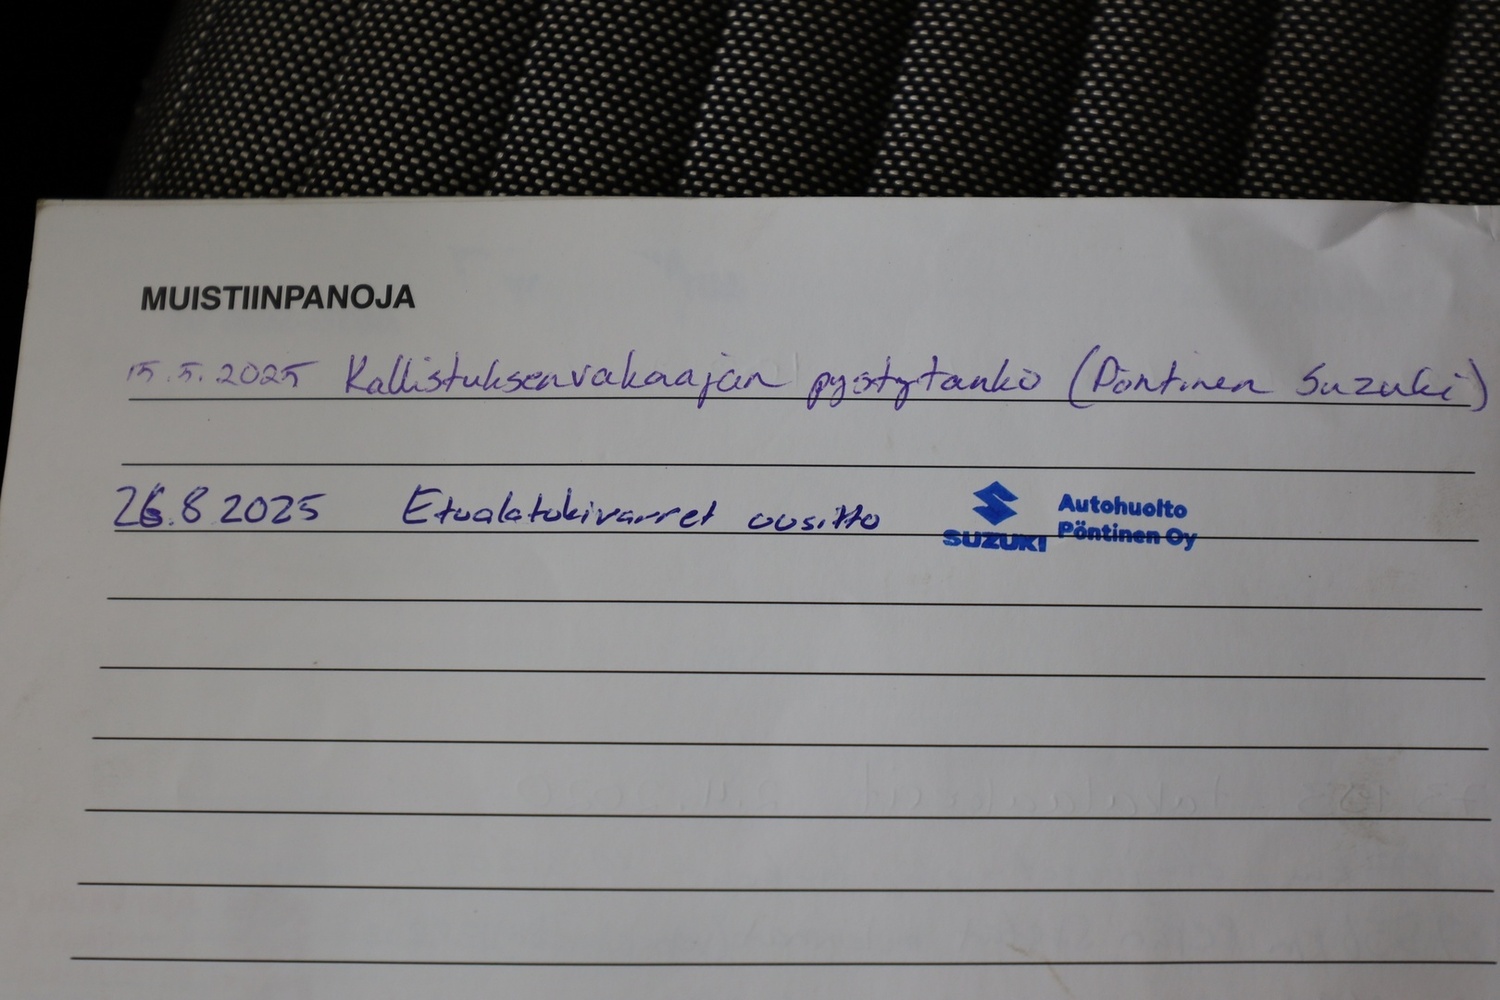 MUISTIINPANOJA
15.5.2025 Kallistuksenvakaajan pystytanko (Pöntinen Suzuki)
26.8.2025 Etualatukivarret uusittu SUZUKI Autohuolto
Pöntinen Oy